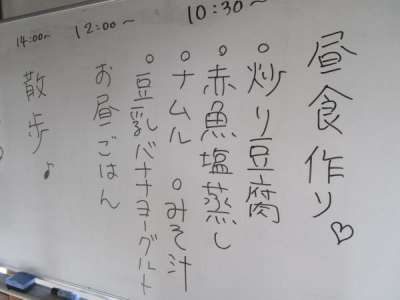 10:30〜
昼食作り♡
○炒り豆腐
○赤魚塩蒸し
○ナムル ○みそ汁
○豆乳バナナヨーグルト
12:00〜
お昼ごはん
14:00〜
散歩♪